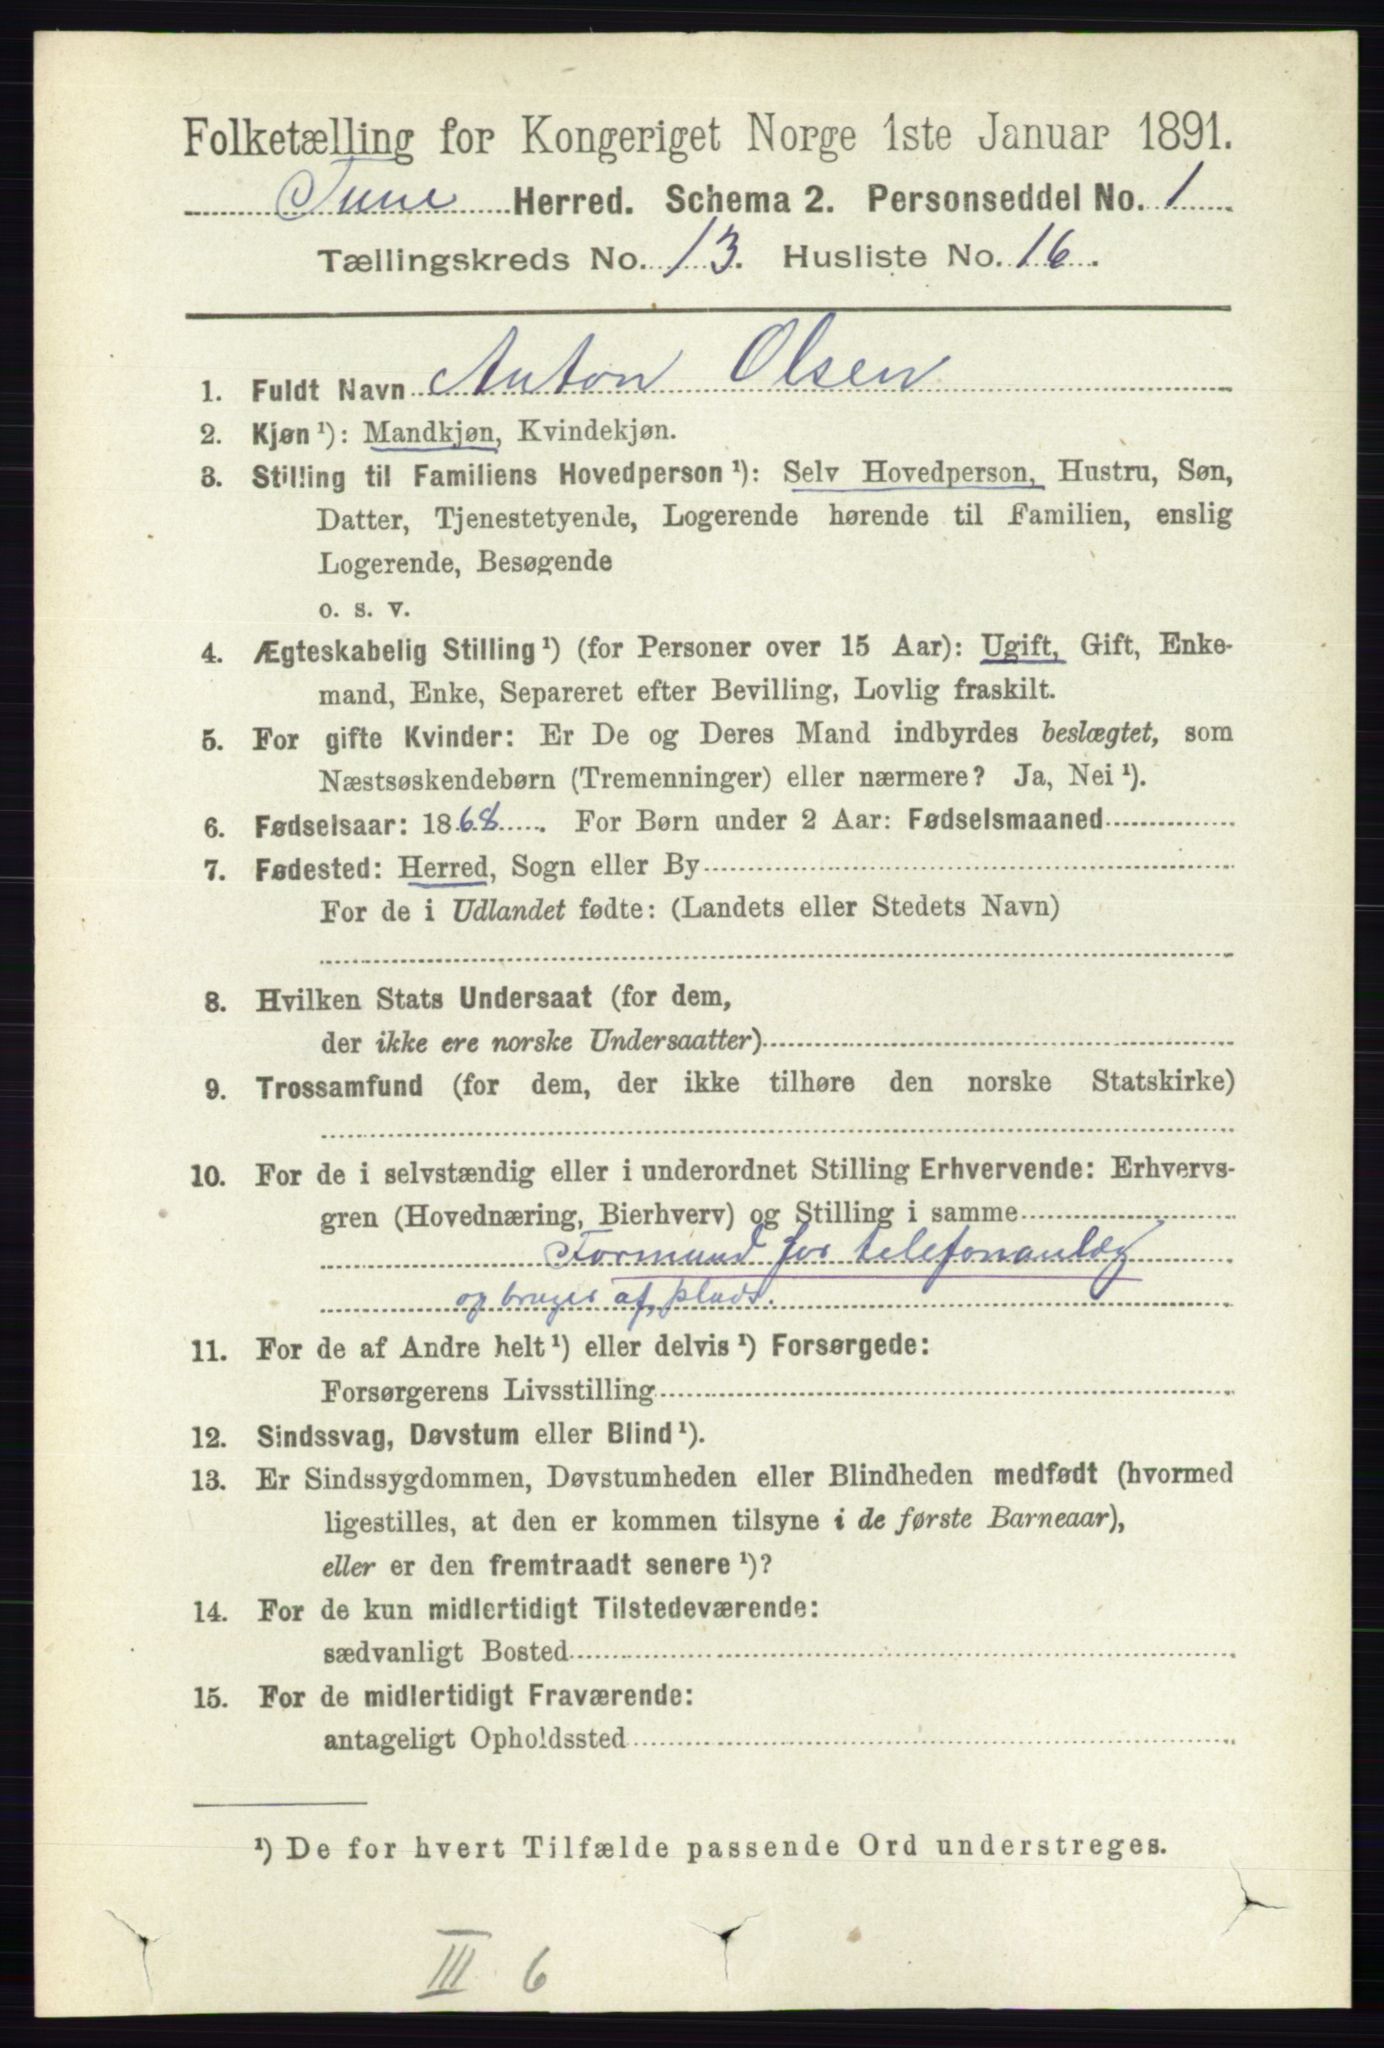 Folketælling for Kongeriget Norge 1ste Januar 1891.
Tune Herred. Schema 2. Personseddel No. 1
Tællingskreds No. 13. Husliste No. 16.
1. Fuldt Navn Anton Olsen
2. Kjøn ¹): Mandkjøn, Kvindekjøn.
3. Stilling til Familiens Hovedperson ¹): Selv Hovedperson, Hustru, Søn,
Datter, Tjenestetyende, Logerende hørende til Familien, enslig
Logerende, Besøgende
o. s. v.
4. Ægteskabelig Stilling ¹) (for Personer over 15 Aar): Ugift, Gift, Enke-
mand, Enke, Separeret efter Bevilling, Lovlig fraskilt.
5. For gifte Kvinder: Er De og Deres Mand indbyrdes beslægtet, som
Næstsøskendebørn (Tremenninger) eller nærmere? Ja, Nei ¹).
6. Fødselsaar: 1868. For Børn under 2 Aar: Fødselsmaaned
7. Fødested: Herred, Sogn eller By
For de i Udlandet fødte: (Landets eller Stedets Navn)
8. Hvilken Stats Undersaat (for dem,
der ikke ere norske Undersaatter)
9. Trossamfund (for dem, der ikke tilhøre den norske Statskirke)
10. For de i selvstændig eller i underordnet Stilling Erhvervende: Erhvervs-
gren (Hovednæring, Bierhverv) og Stilling i samme
Formand for telefonanlæg
og bruger af plads.
11. For de af Andre helt ¹) eller delvis ¹) Forsørgede:
Forsørgerens Livsstilling
12. Sindssvag, Døvstum eller Blind ¹).
13. Er Sindssygdommen, Døvstumheden eller Blindheden medfødt (hvormed
ligestilles, at den er kommen tilsyne i de første Barneaar),
eller er den fremtraadt senere ¹)?
14. For de kun midlertidigt Tilstedeværende:
sædvanligt Bosted
15. For de midlertidigt Fraværende:
antageligt Opholdssted
¹) De for hvert Tilfælde passende Ord understreges.
III 6